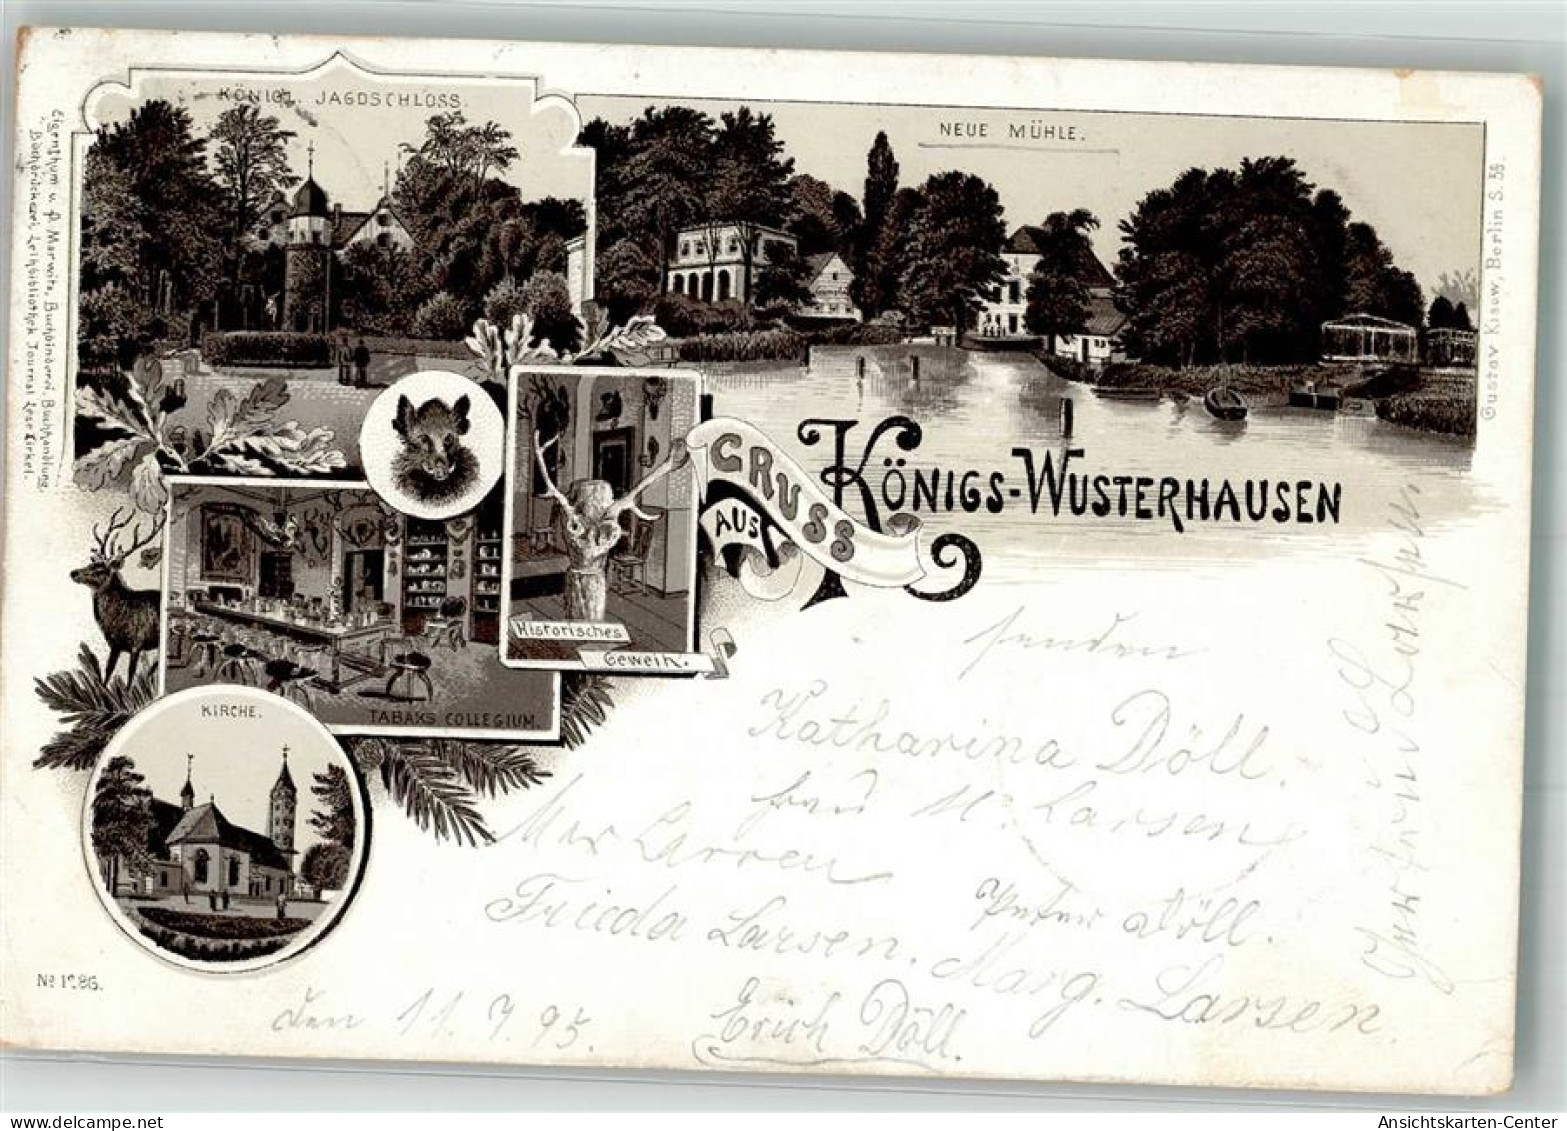 KÖNIGL. JAGDSCHLOSS.
NEUE MÜHLE.
Eigenthum v. P. Marwitz, Buchbinderei, Buchhandlung,
Buchdruckerei, Leihbibliothek, Journal Lesezirkel.
Gustav Kisow, Berlin S. 59.
GRUSS
AUS
KÖNIGS-WUSTERHAUSEN
Historisches
Geweih.
TABAKS COLLEGIUM.
KIRCHE.
senden
Katharina Döll.
Frau M. Larsen
Peter Döll.
Frieda Larsen. Marg. Larsen.
den 11. 7. 95. Erich Döll.
Ansichtskarten-Center